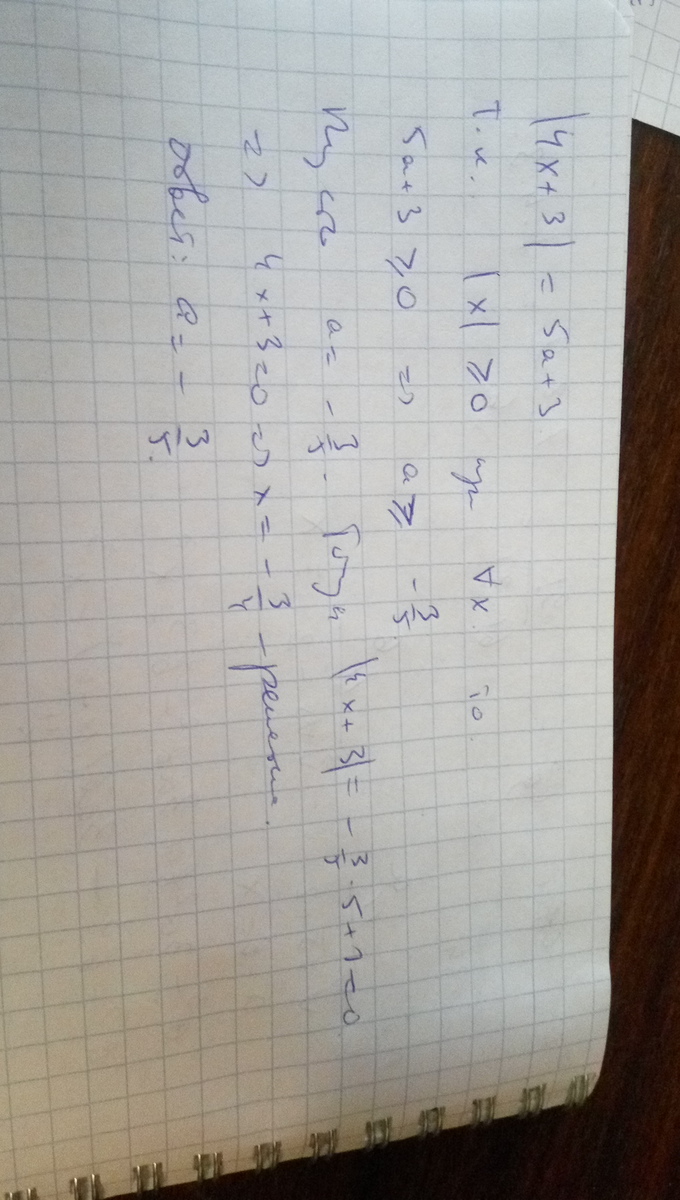 |4x+3| = 5a+3.
Т.к. |x| ⩾ 0 при ∀x. то.
5a+3 ⩾ 0 => a ⩾ -3/5.
Пусть a = -3/5. Тогда |4x+3| = -3/5·5+3=0
=> 4x+3=0 => x = -3/4 - решение.
Ответ: a = -3/5.